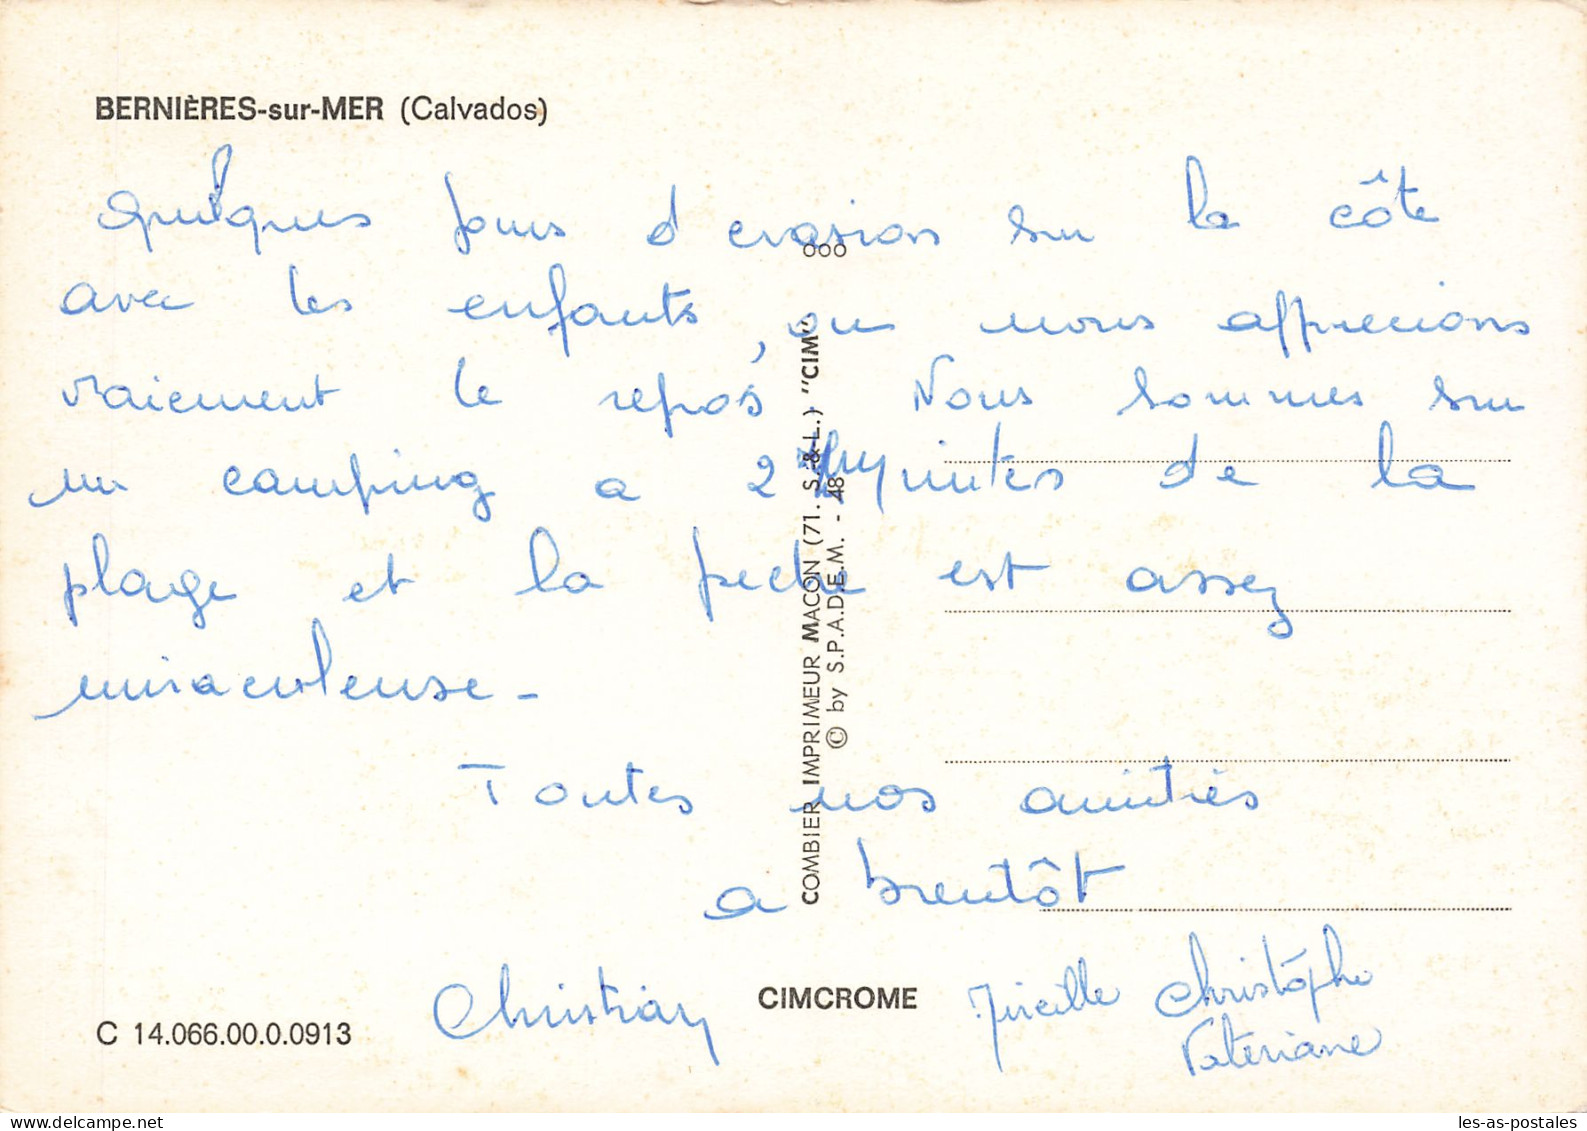 BERNIÈRES-sur-MER (Calvados)
Quelques jours d evasion sur la côte
avec les enfants, ou nous apprecions
vraiement le repos. Nous sommes sur
un camping a 2 minutes de la
plage et la peche est assez
miraculeuse -
Toutes nos amitiés
a bientôt
Christian Mireille Christophe
Valeriane
COMBIER IMPRIMEUR MACON (71. S.-&-L.) "CIM"
© by S.P.A.D.E.M. - 48
CIMCROME
C 14.066.00.0.0913
les-as-postales